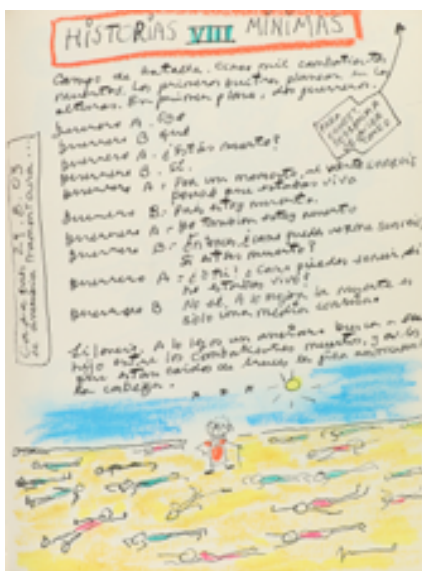 HISTORIAS VIII MÍNIMAS
Campo de batalla. Cinco mil combatientes
muertos. Los primeros buitres planean en las
alturas. En primer plano, dos guerreros.
Guerrero A - Eso
Guerrero B Qué
Guerrero A - ¿Estás muerto?
Guerrero B - Sí.
Guerrero A - Por un momento, al verte sonreír
pensé que estabas vivo
Guerrero B - Pues estoy muerto.
Guerrero A - Yo también estoy muerto
Guerrero B - Entonces, ¿cómo puedes verme sonreír,
si estás muerto?
Guerrero A - ¿Y tú? ¿Cómo puedes sonreír si
no estabas vivo?
Guerrero B No sé. A lo mejor la muerte es
sólo una media
Silencio. A lo lejos un anciano busca a su
hijo entre los combatientes muertos, y a los
que están caídos de bruces les gira
la cabeza.
PARA